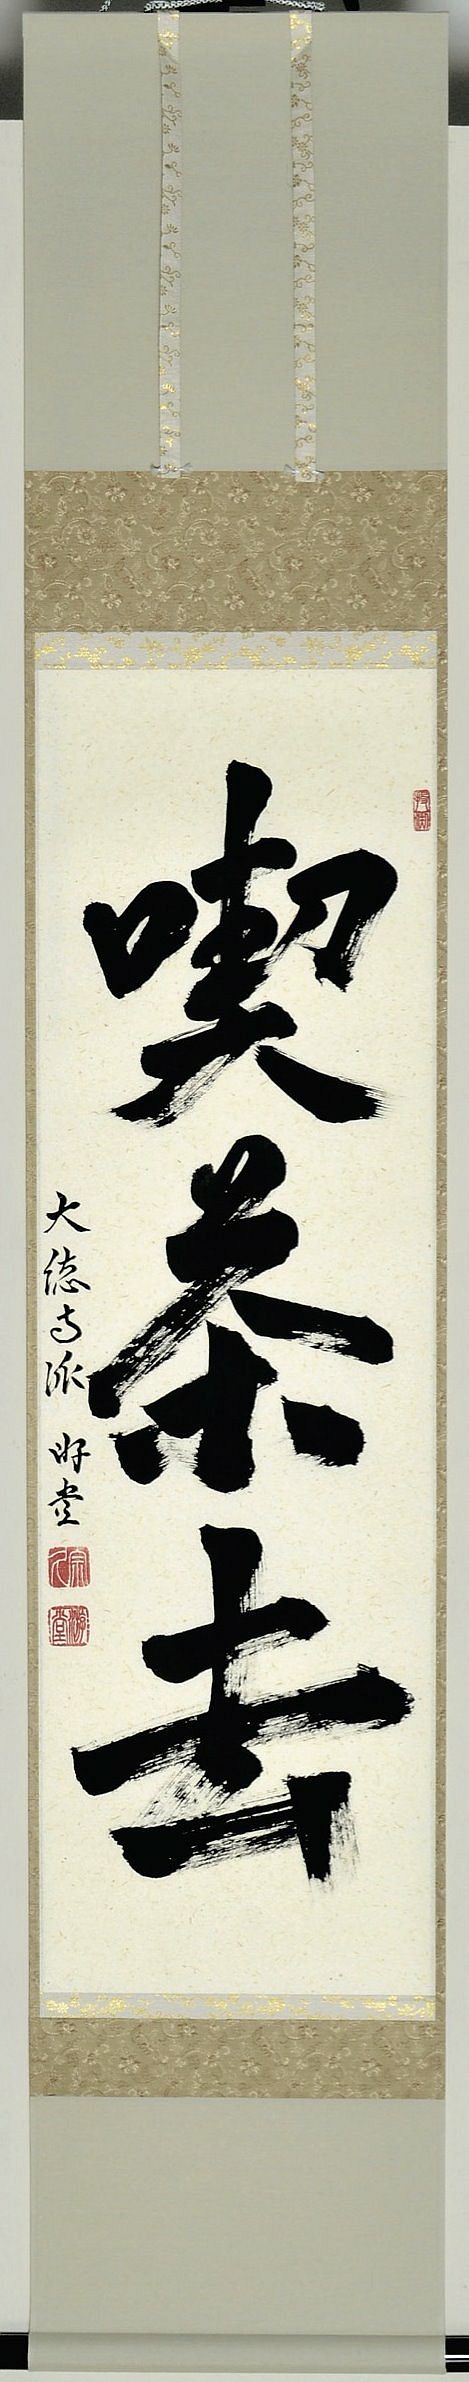 喫茶去
大徳寺派 明堂